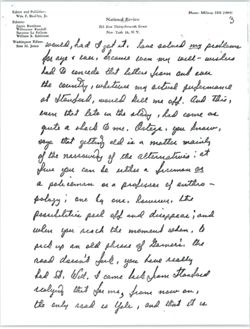 Editor and Publisher:
Wm. F. Buckley, Jr.
National Review
Phone: MUrray Hill
3
Editors:
James Burnham
Willmoore Kendall
Suzanne La Follette
William S. Schlamm
211 East Thirty-Seventh Street
New York 16, N.Y.
Washington Editor:
Sam M. Jones
would, had I got it, have solved my problems
for aye & ever, because even my well-wishers
had to concede that letters from and over
the country, whatever my actual performance
at Stanford, would kill me off. And this,
even that late in the study, had come as
quite a shock to me. Ortega, you know,
says that getting old is a matter mainly
of the narrowing of the alternatives: at
five you can be either a fireman or
a policeman or a professor of anthro-
pology; one by one, however, the
possibilities peel off and disappear; and
when you reach the moment when, to
pick up an old phrase of Garner's the
road doesn't fork, you have really
had it. Well, I came back from Stanford
realizing that for me, from now on,
the only road is Yale, and that it is